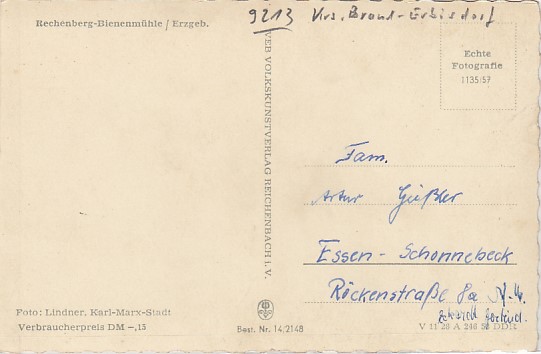 Rechenberg-Bienenmühle / Erzgeb.
9213 Krs. Brand-Erbisdorf
VEB VOLKSKUNSTVERLAG REICHENBACH i. V.
Echte
Fotografie
1135/57
Fam.
Artur Geißler
Essen - Schonnebeck
Röckenstraße 8a
Foto: Lindner, Karl-Marx-Stadt
Verbraucherpreis DM -,15
Best. Nr. 14/2148
V 11 28 A 246 58 DDR